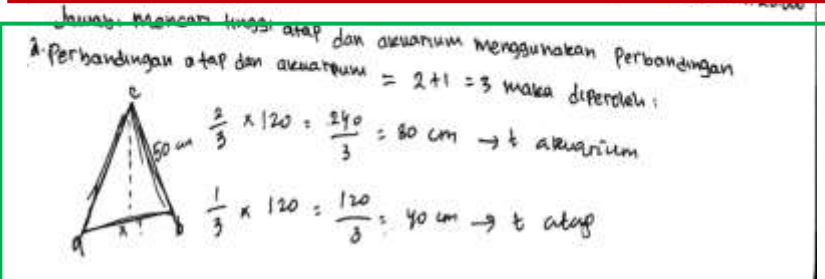 Jawab: Mencari tinggi atap dan akuarium menggunakan Perbandingan
a. Perbandingan atap dan akuarium = 2+1 = 3 maka diperoleh :
c
50 cm
2/3 x 120 = 240/3 = 80 cm → t akuarium
1/3 x 120 = 120/3 = 40 cm → t atap
a x ? b